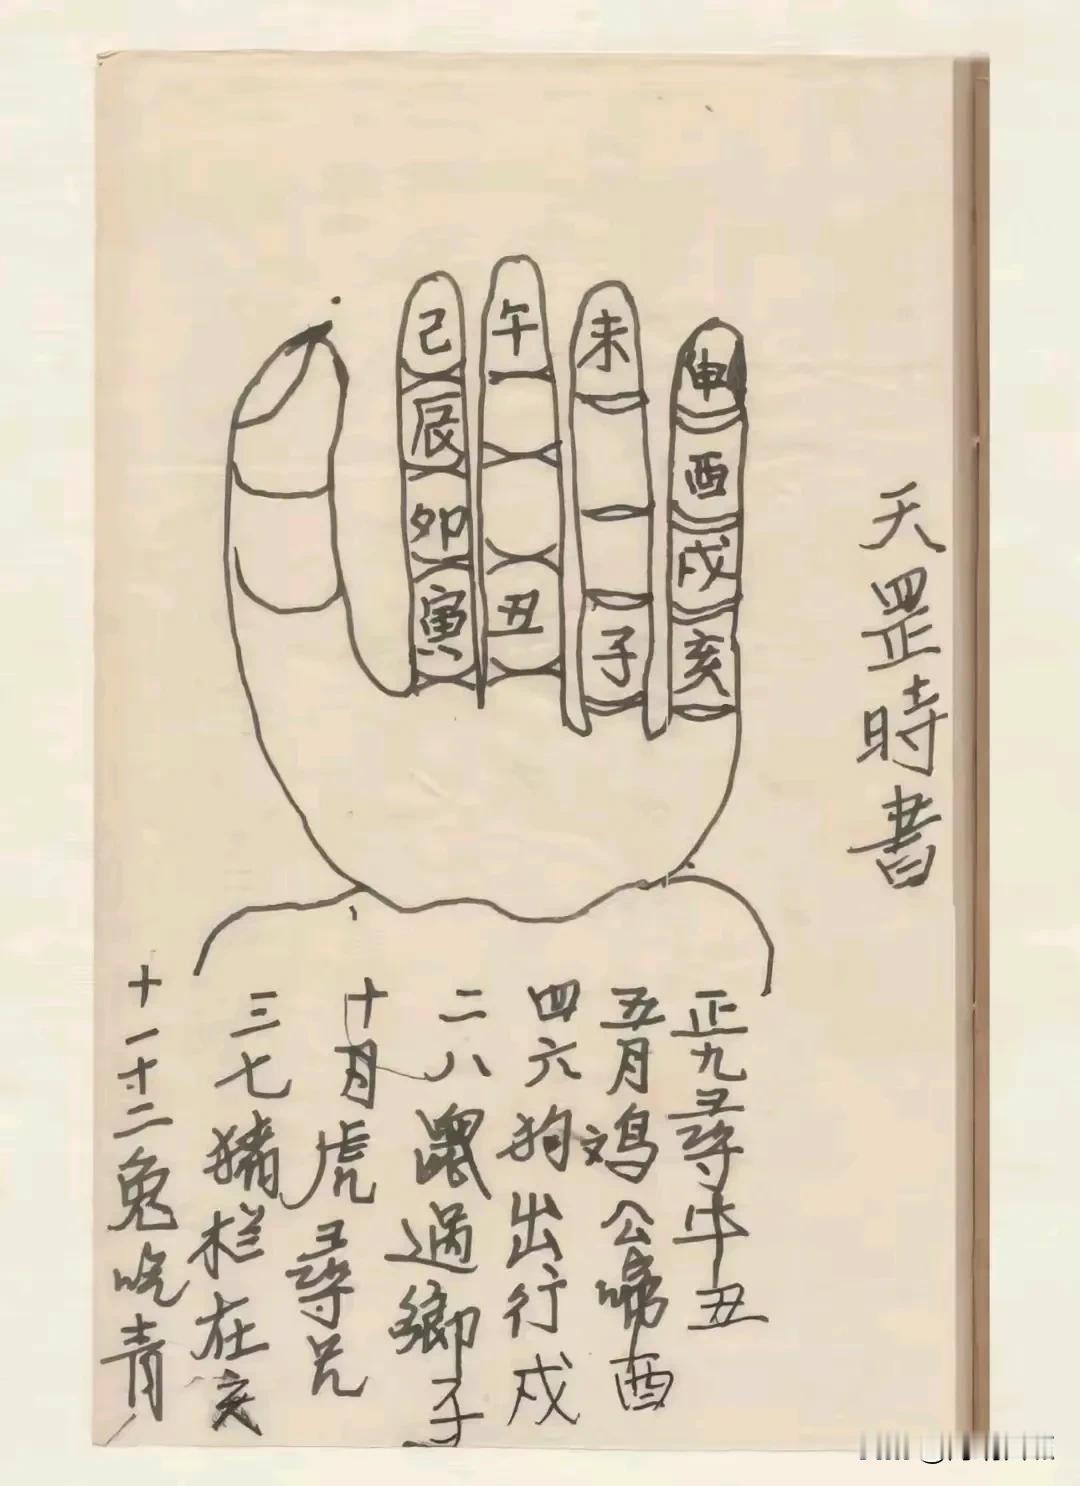 天罡時書
己
午
未
申
辰
酉
卯
戌
寅
丑
子
亥
正九尋牛丑
五月鸡公啼酉
四六狗出行戌
二八鼠過鄉子
十月虎尋兄
三七猪栏在亥
十一十二兔吃青